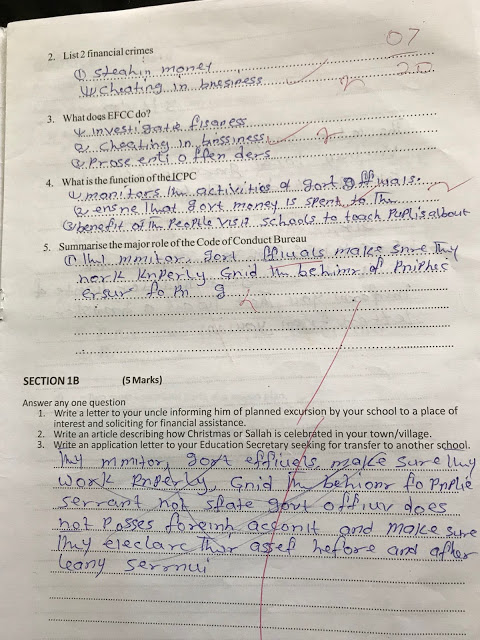 07
20
2. List 2 financial crimes
① Steahin money
② Cheating in bnesiness
3. What does EFCC do?
investigate fisaness
2. cheating in bnssiness
prose enti offen ders
4. What is the function of the ICPC
manitors the activities of gort officials.
2. ensne that govt money is spent to the
③ benefit of the People visit schools to teach Puplis about
5. Summarise the major role of the Code of Conduct Bureau
① thy mmitor, gort offiuals make snre thy
work knperly Gnid the behimr of
SECTION 1B (5 Marks)
Answer any one question
1. Write a letter to your uncle informing him of planned excursion by your school to a place of
interest and soliciting for financial assistance.
2. Write an article describing how Christmas or Sallah is celebrated in your town/village.
3. Write an application letter to your Education Secretary seeking for transfer to another school.
thy mmitor, govt effiuels make sure thy
woxk pnperly, Gnid the behionr fo Pnplie
serrant not state govt offiur does
not Posses foreinh acconlt and make sure
thy eleclare thir assef hefore and after
leany sermui